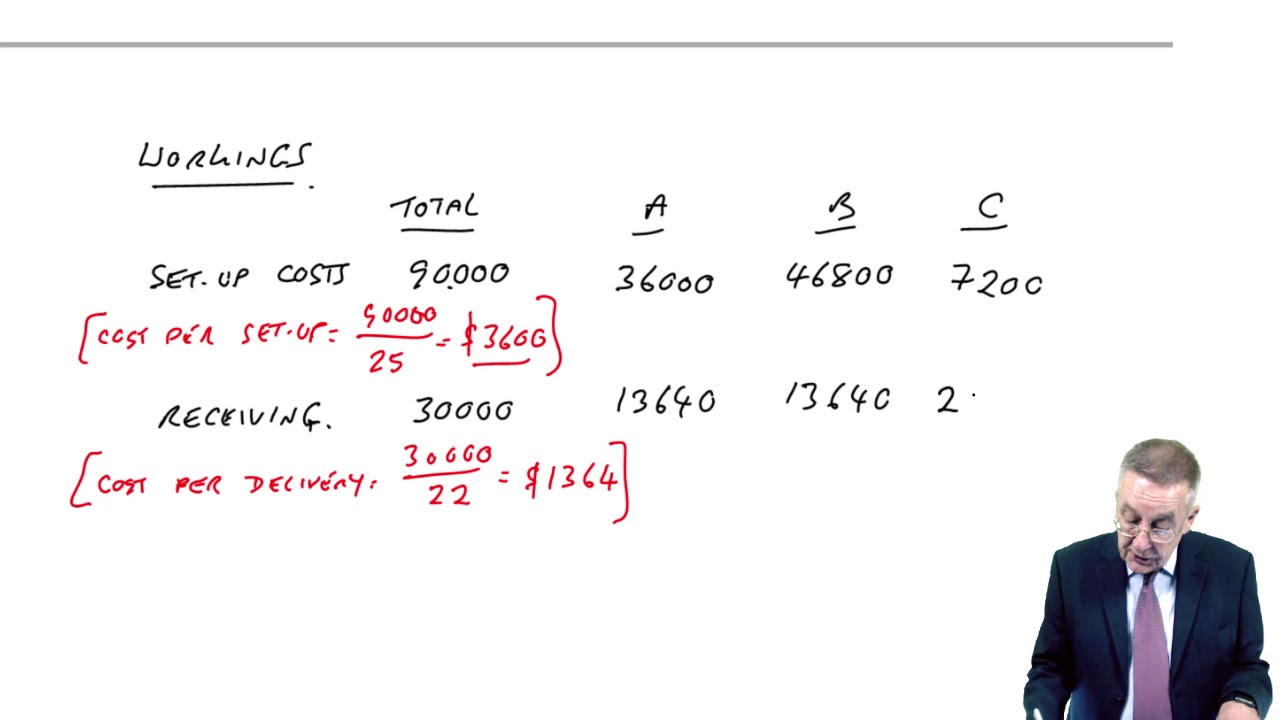 WORKINGS.
TOTAL A B C
SET-UP COSTS 90,000 36000 46800 7200
[COST PER SET-UP = 90000/25 = $3600]
RECEIVING. 30000 13640 13640 2
[COST PER DELIVERY: 30000/22 = $1364]